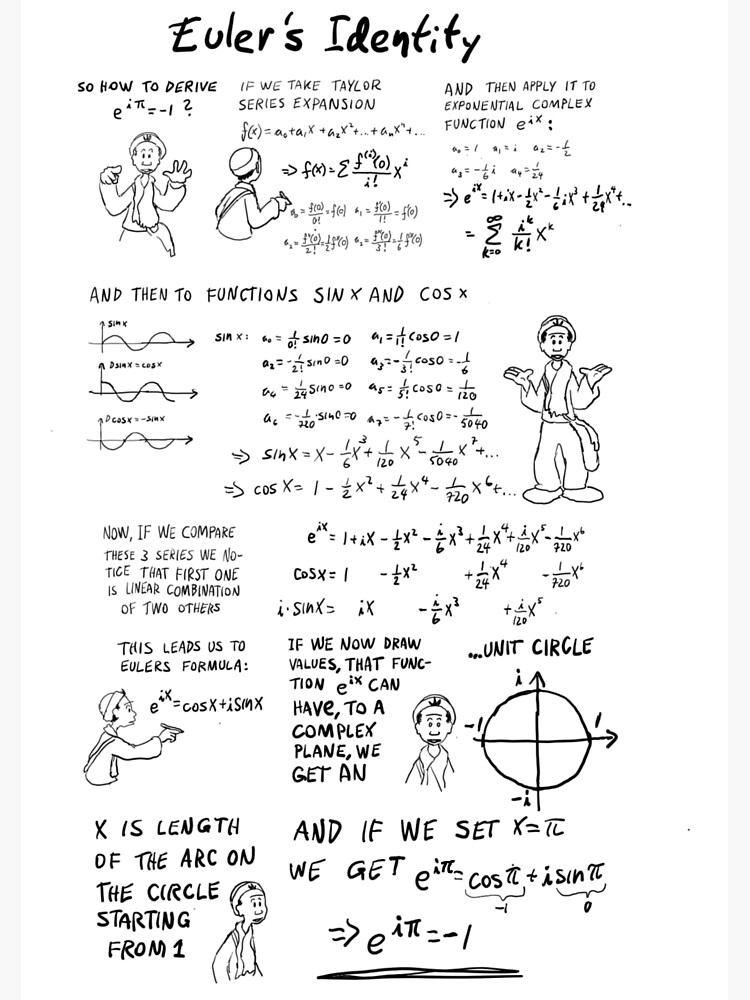 Euler's Identity
SO HOW TO DERIVE
e^{iπ}=-1 ?
IF WE TAKE TAYLOR
SERIES EXPANSION
f(x)=a₀+a₁x+a₂x²+...+aₙxⁿ+...
⇒ f(x)=Σ f^{(i)}(0)/i! x^i
a₀=f(0)/0!=f(0) a₁=f'(0)/1!=f'(0)
a₂=f''(0)/2!=1/2 f''(0) a₃=f'''(0)/3!=1/6 f'''(0)
AND THEN APPLY IT TO
EXPONENTIAL COMPLEX
FUNCTION e^{ix}:
a₀=1 a₁=i a₂=-1/2
a₃=-1/6 i a₄=1/24
⇒ e^{ix}=1+ix-1/2x²-1/6ix³+1/24x⁴+...
= Σ_{k=0}^{∞} i^k/k! x^k
AND THEN TO FUNCTIONS SIN X AND COS X
sin x
Dsinx=cosx
Dcosx=-sinx
sin x: a₀=1/0! sin0=0 a₁=1/1! cos0=1
a₂=-1/2! sin0=0 a₃=-1/3! cos0=-1/6
a₄=1/24 sin0=0 a₅=1/5! cos0=1/120
a₆=-1/720·sin0=0 a₇=-1/7! cos0=-1/5040
⇒ sinx=x-1/6x³+1/120x⁵-1/5040x⁷+...
⇒ cosx=1-1/2x²+1/24x⁴-1/720x⁶+...
NOW, IF WE COMPARE
THESE 3 SERIES WE NO-
TICE THAT FIRST ONE
IS LINEAR COMBINATION
OF TWO OTHERS
e^{ix}=1+ix-1/2x²-i/6x³+1/24x⁴+i/120x⁵-1/720x⁶
cosx=1 -1/2x² +1/24x⁴ -1/720x⁶
i·sinx= ix -i/6x³ +i/120x⁵
THIS LEADS US TO
EULERS FORMULA:
e^{ix}=cosx+isinx
IF WE NOW DRAW
VALUES, THAT FUNC-
TION e^{ix} CAN
HAVE, TO A
COMPLEX
PLANE, WE
GET AN
...UNIT CIRCLE
i
-1 1
-i
X IS LENGTH
OF THE ARC ON
THE CIRCLE
STARTING
FROM 1
AND IF WE SET X=π
WE GET e^{iπ}=cosπ+isinπ
-1 0
⇒ e^{iπ}=-1